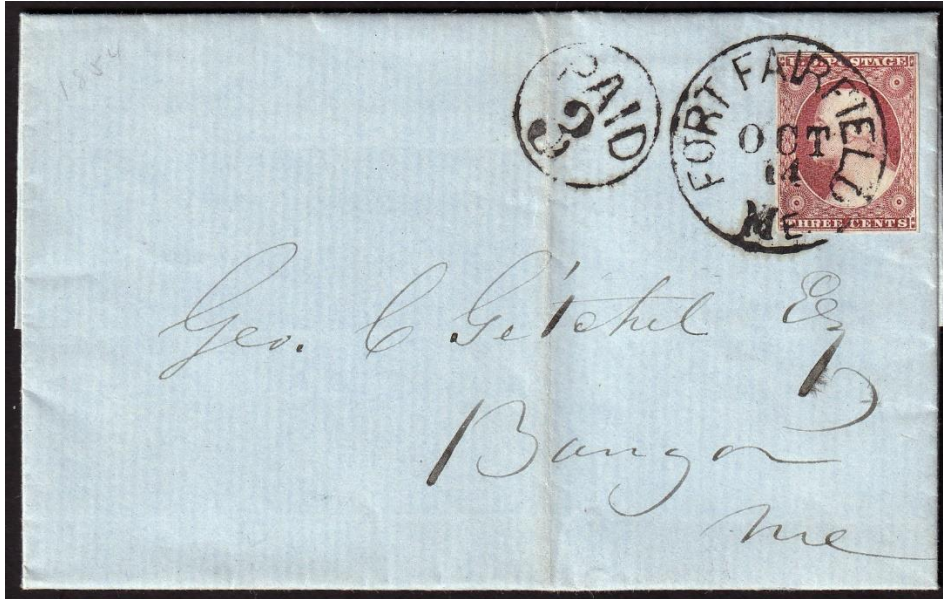 1854
PAID
3
FORT FAIRFIELD
OCT
14
ME.
U.S. POSTAGE
THREE CENTS
Geo. C Getchel Esq
Bangor
Me